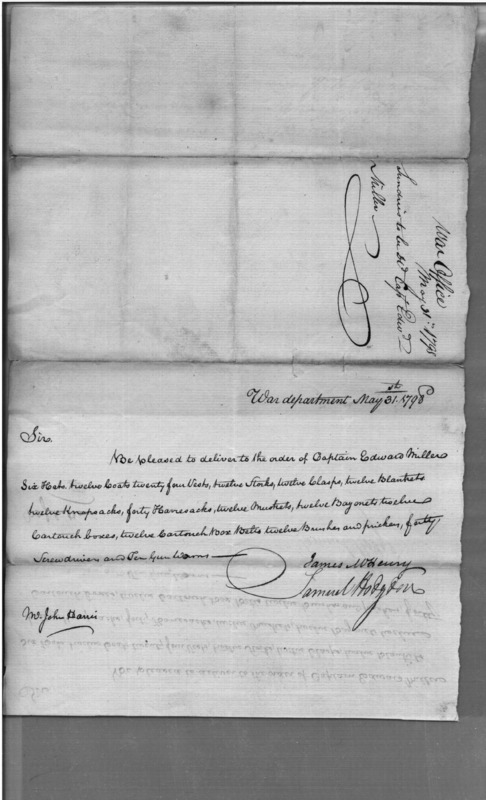 War Office
May 31st 1798
Sundries to be dd Capt Edwd
Miller
War department May 31st 1798
Sir.
Be pleased to deliver to the order of Captain Edward Miller
Six Hats, twelve Coats twenty four Vests, twelve Stocks, twelve Clasps, twelve Blankets
twelve Knapsacks, forty Haversacks, twelve Muskets, twelve Bayonets twelve
Cartouch boxes, twelve Cartouch Box Belts twelve Brushes and prickers, forty
Screwdrivers and Ten Gun Worms
James McHenry
Samuel Hodgdon
Mr John Harris